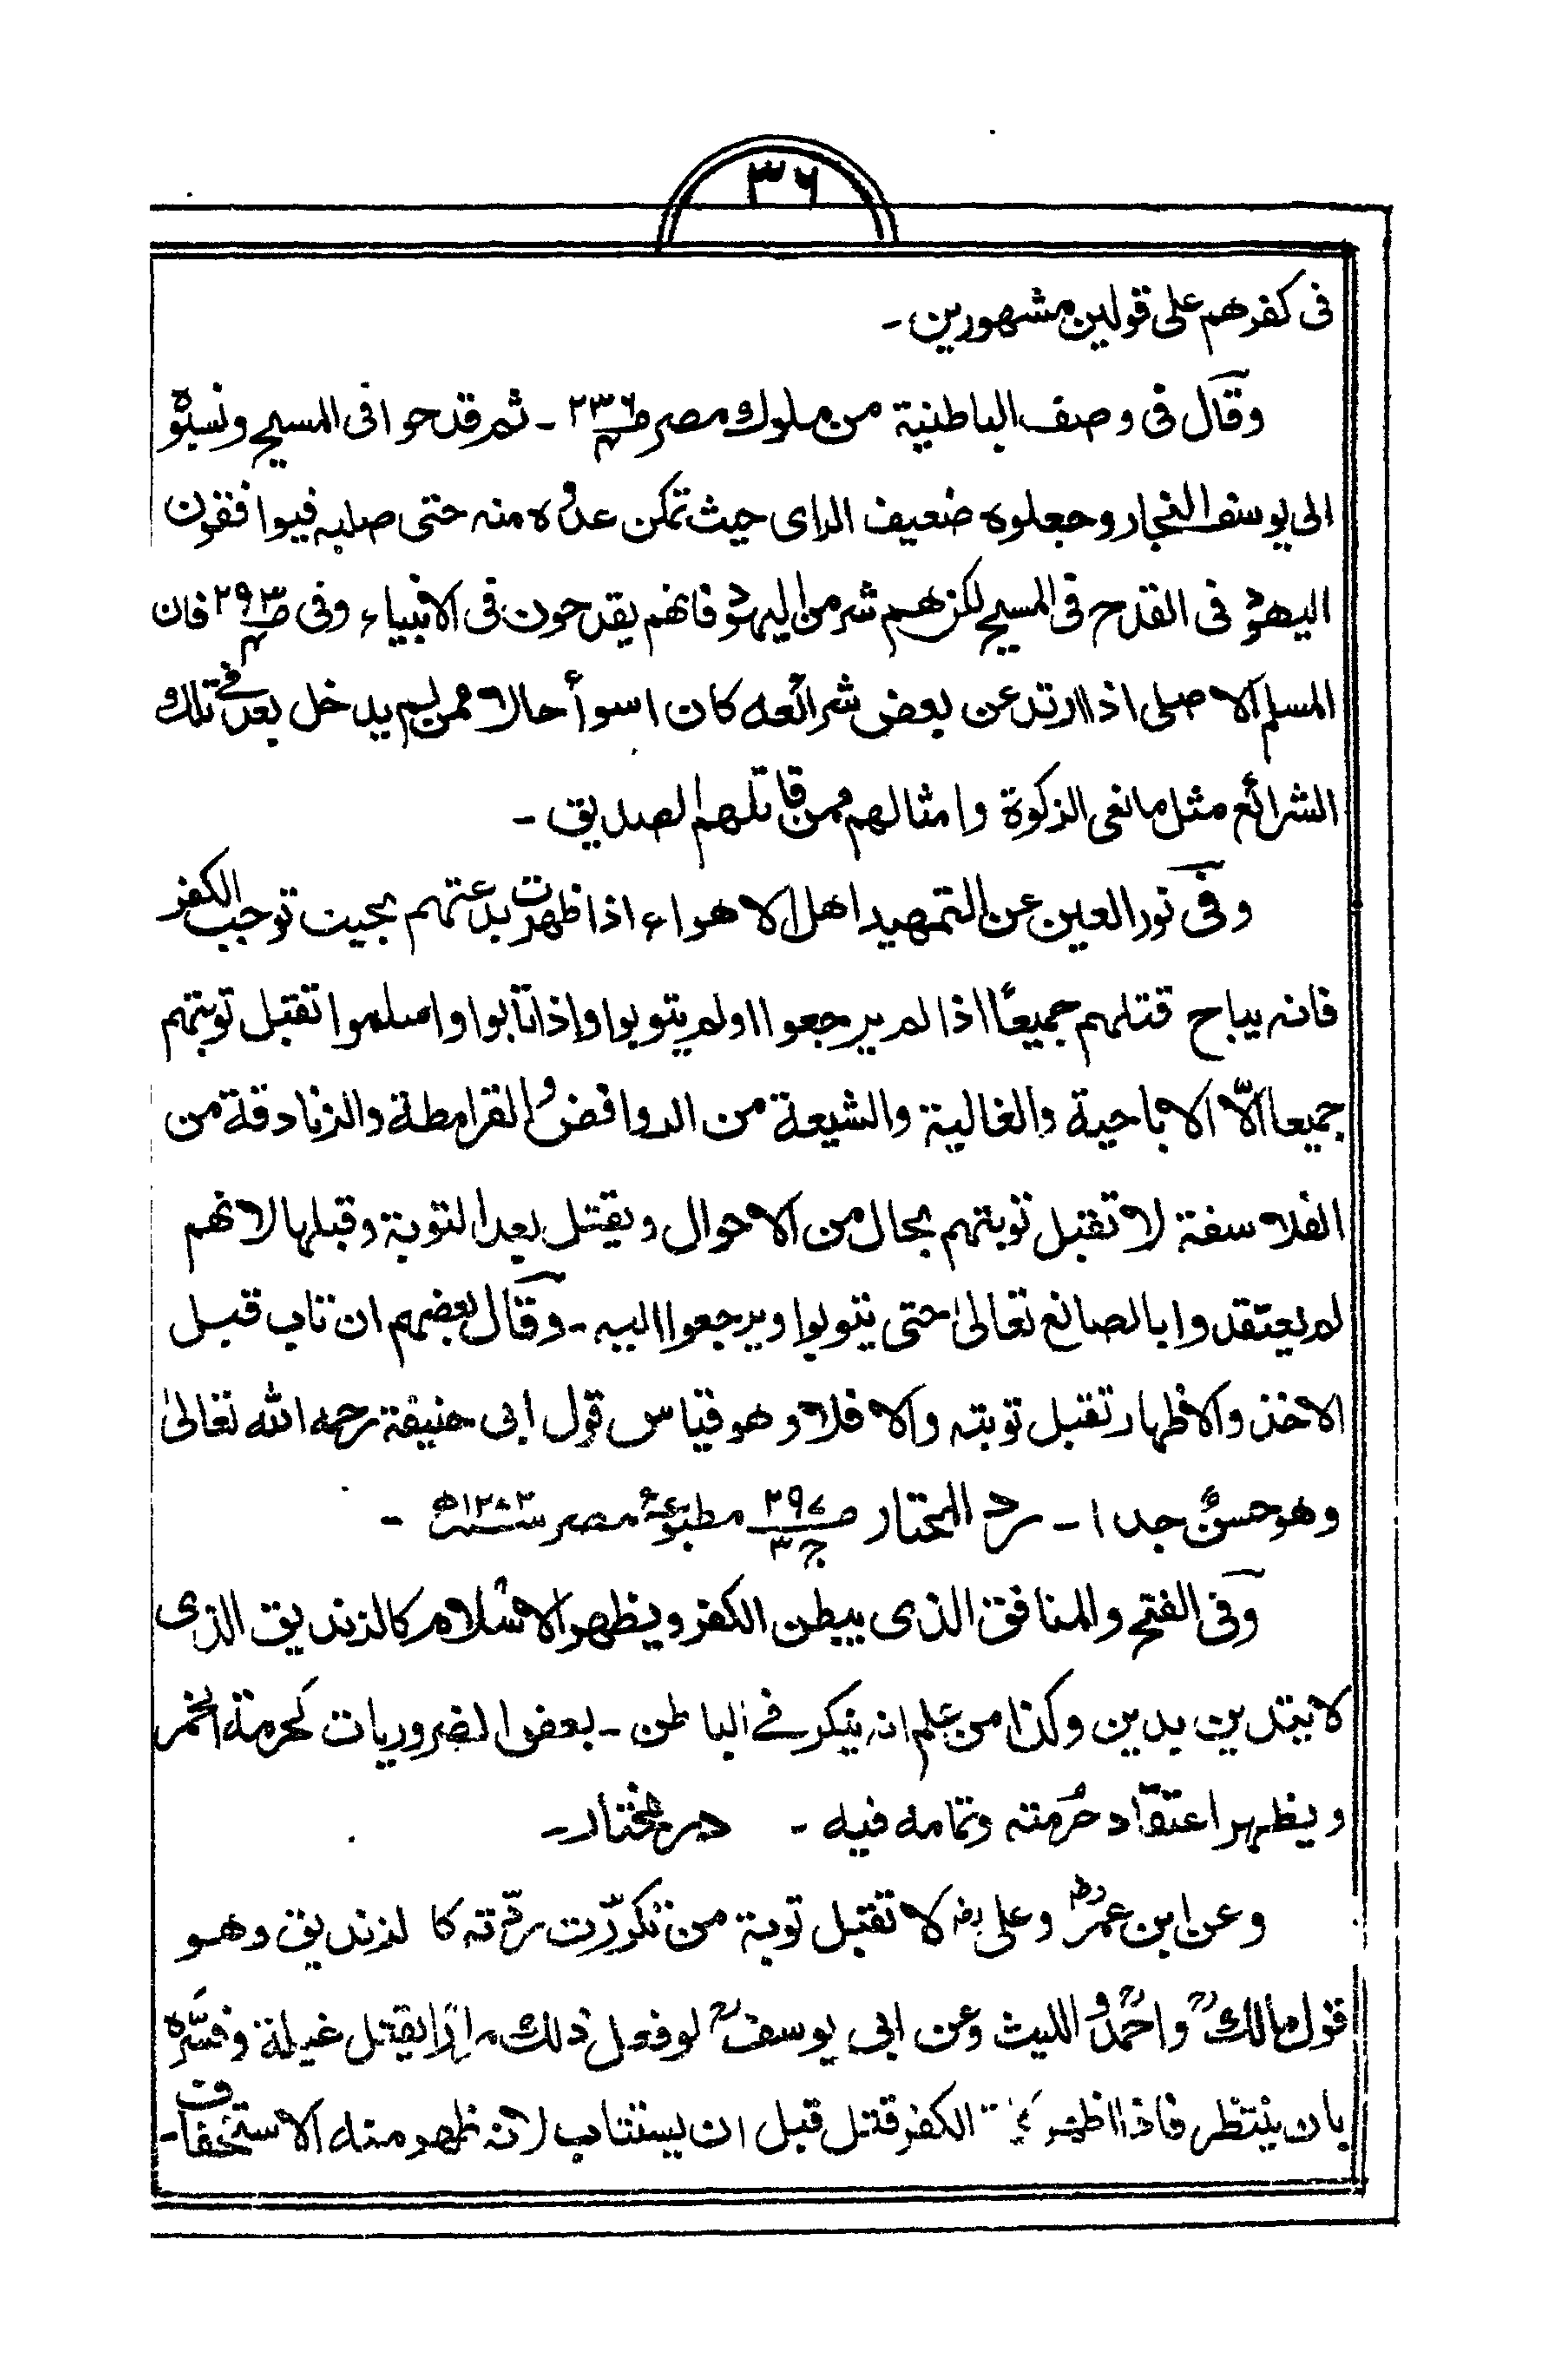 ٣٦
فی کفرهم علی قولین مشهورین۔
وقال فی وصف الباطنیة من ملوك مصر ص٢٣٦ ج٤ ۔ ثم قدحوا فی المسیح ونسبوه
الی یوسف النجار وجعلوه ضعیف الرای حیث تمکن عدوه منه حتی صلبه فیوافقون
الیهود فی القدح فی المسیح لکن هم شر من الیهود فانهم یقدحون فی الانبیاء وفی ص٢٩٣ ج٤ فان
المسلم الاصلی اذا ارتد عن بعض شرائعه کان اسوأ حالا ممن لم یدخل بعد فی تلك
الشرائع مثل مانعی الزکوة وامثالهم ممن قاتلهم الصدیق۔
وفی نور العین عن التمهید اهل الاهواء اذا ظهرت بدعتهم بحیث توجب الکفر
فانه یباح قتلهم جمیعًا اذا لم یرجعوا اولم یتوبوا وإذا تابوا واسلموا تقبل توبتهم
جمیعا الّا الاباحیة والغالیة والشیعة من الروافض والقرامطة والزنادقة من
الفلاسفة لا تقبل توبتهم بحال من الاحوال ویقتل بعد التوبة وقبلها لانهم
لم یعتقدوا بالصانع تعالیٰ حتی یتوبوا ویرجعوا الیه۔ وقال بعضهم ان تاب قبل
الاخذ والاظهار تقبل توبته والا فلا وهو قیاس قول ابی حنیفة رحمه الله تعالیٰ
وهو حسنٌ جدا۔ رد المحتار ص٢٩٧ ج٣ مطبوعۂ مصر
وفی الفتح والمنافق الذی یبطن الکفر ویظهر الاسلام کالزندیق الذی
لا یتدین بدین وکذا من علم انه ینکر فی الباطن۔ بعض الضروریات کحرمة الخمر
ویظهر اعتقاد حُرمته وتمامه فیه۔ درمختار۔
وعن ابن عمرؓ وعلیؓ لا تقبل توبة من تکرّرت ردّته کا لزندیق وهو
قول مالكؒ واحمدؒ واللیث وعن ابی یوسفؒ لو فعل ذلك مرارًا یقتل غیلة وفسّره
بان ینتظر فاذا اظهر الکفر قتل قبل ان یستتاب لانه ظهر منه الاستخفاف۔